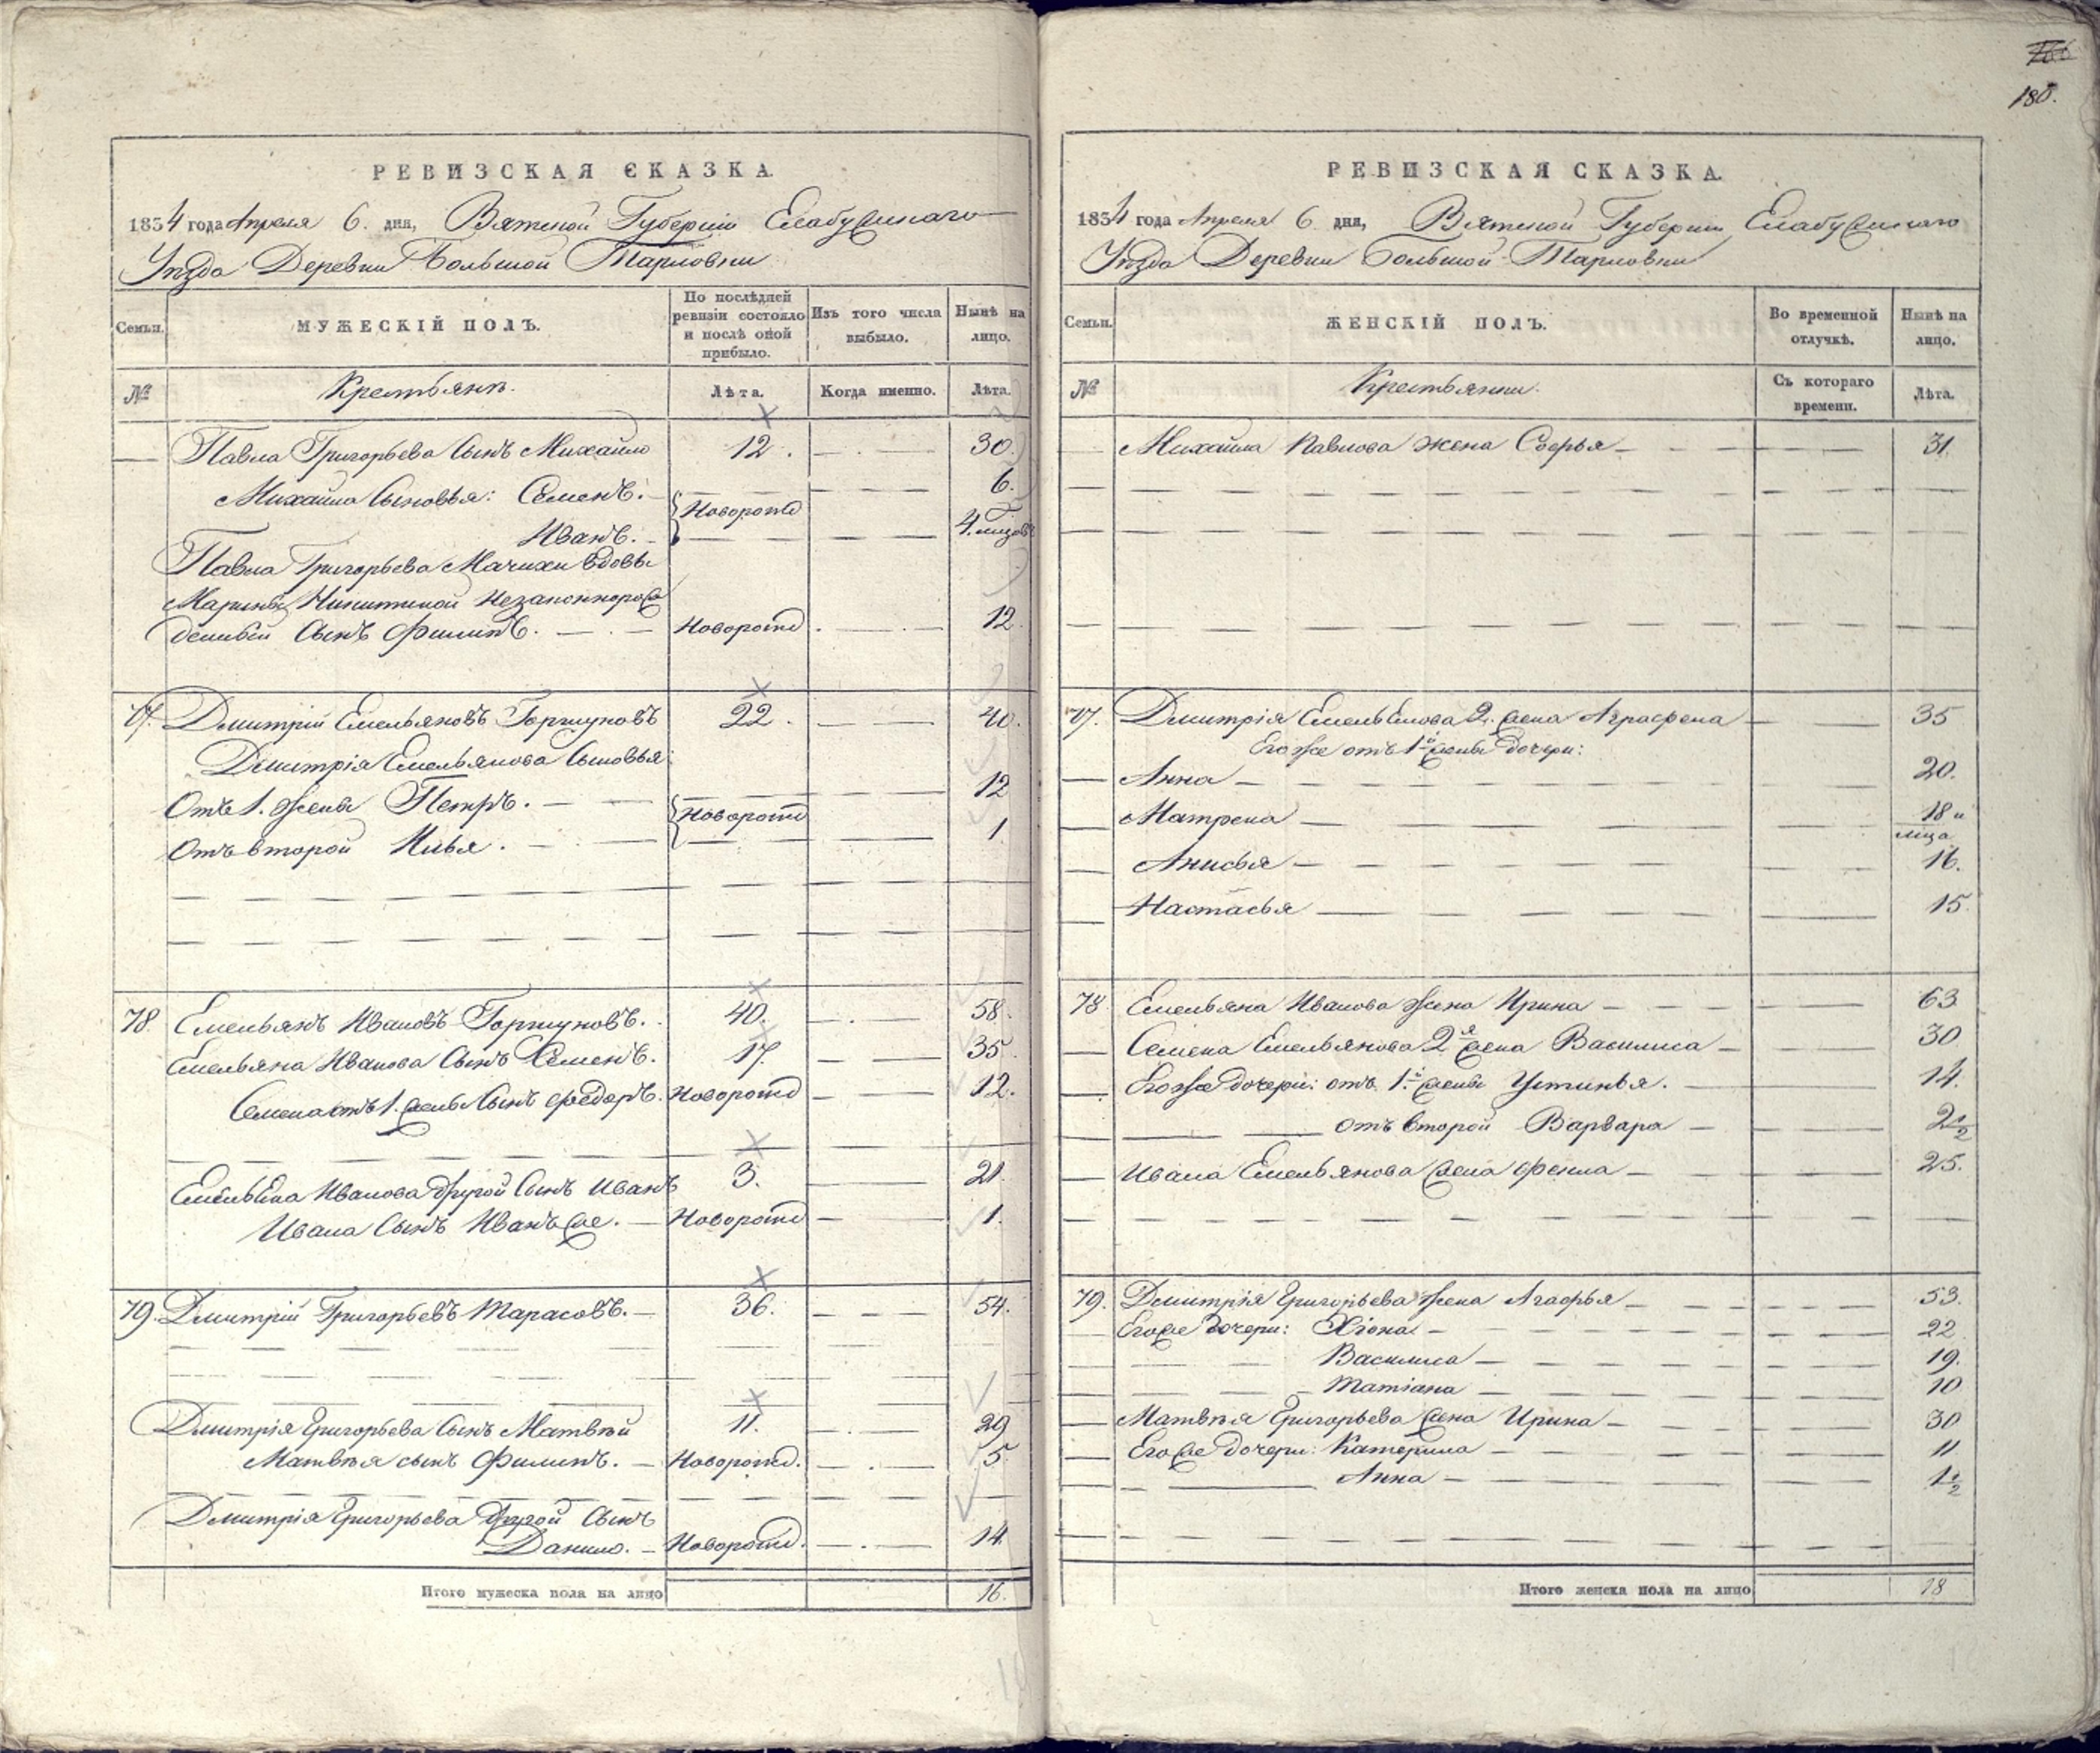 166
180.
РЕВИЗСКАЯ СКАЗКА.
1834 года Апреля 6. дня, Вятской Губернiи Елабужскаго
Уѣзда Деревни Большой Тарловки
Семьи.
МУЖЕСКІЙ ПОЛЪ.
По послѣдней ревизіи состояло и послѣ оной прибыло.
Изъ того числа выбыло.
Нынѣ на лицо.
№
Крестьянъ.
Лѣта.
Когда именно.
Лѣта.
Павла Григорьева Сынъ Михайло 12. 30.
Михайла Сыновья: Семенъ. 6.
Новорожд
Иванъ. 4. мѣзсов
Павла Григорьева Мачихи вдовы
Марины Никитиной Незаконнорож
денный Сынъ Филипъ. Новорожд 12.
77. Дмитрій Емельяновъ Горшуновъ 22. 40.
Дмитрія Емельянова Сыновья:
Отъ 1. Жены Петръ. 12
Новорожд
Отъ второй Илья. 1.
78. Емельянъ Ивановъ Горшуновъ. 40. 58.
Емельяна Иванова Сынъ Семенъ. 17. 35.
Семена отъ 1. жены Сынъ Федоръ. Новорожд 12.
Емельяна Иванова другой Сынъ Иванъ 3. 21.
Ивана Сынъ Иванъ же. Новорожд 1.
79. Дмитрій Григорьевъ Тарасовъ. 36. 54.
Дмитрія Григорьева Сынъ Матвѣй 11. 29
Матвѣя сынъ Филипъ. Новорожд. 5.
Дмитрія Григорьева другой Сынъ
Данило. Новорожд. 14.
Итого мужеска пола на лицо 16.
РЕВИЗСКАЯ СКАЗКА.
1834 года Апреля 6 дня, Вятской Губернiи Елабужскаго
Уѣзда Деревни Большой Тарловки
Семьи.
ЖЕНСКІЙ ПОЛЪ.
Во временной отлучкѣ.
Нынѣ на лицо.
№
Крестьянки.
Съ котораго времени.
Лѣта.
Михайла Павлова жена Софья 31.
77. Дмитрія Емельянова 2. жена Аграфена 35
Егоже отъ 1й жены дочери:
Анна 20.
Матрена 18 и
мѣца
Анисья 16.
Настасья 15.
78. Емельяна Иванова Жена Ирина 63.
Семена Емельянова 2я жена Василиса 30
Егоже дочери: отъ 1й жены Устинья. 14.
отъ второй Варвара 2 1/2
Ивана Емельянова жена Фекла 25.
79. Дмитрія Григорьева Жена Агафья 53.
Егоже дочери: Хіона 22
Василиса 19.
Татіана 10
Матвѣя Григорьева жена Ирина 30
Егоже дочери: Катерина 11
Анна 1 1/2
Итого женска пола на лицо 18